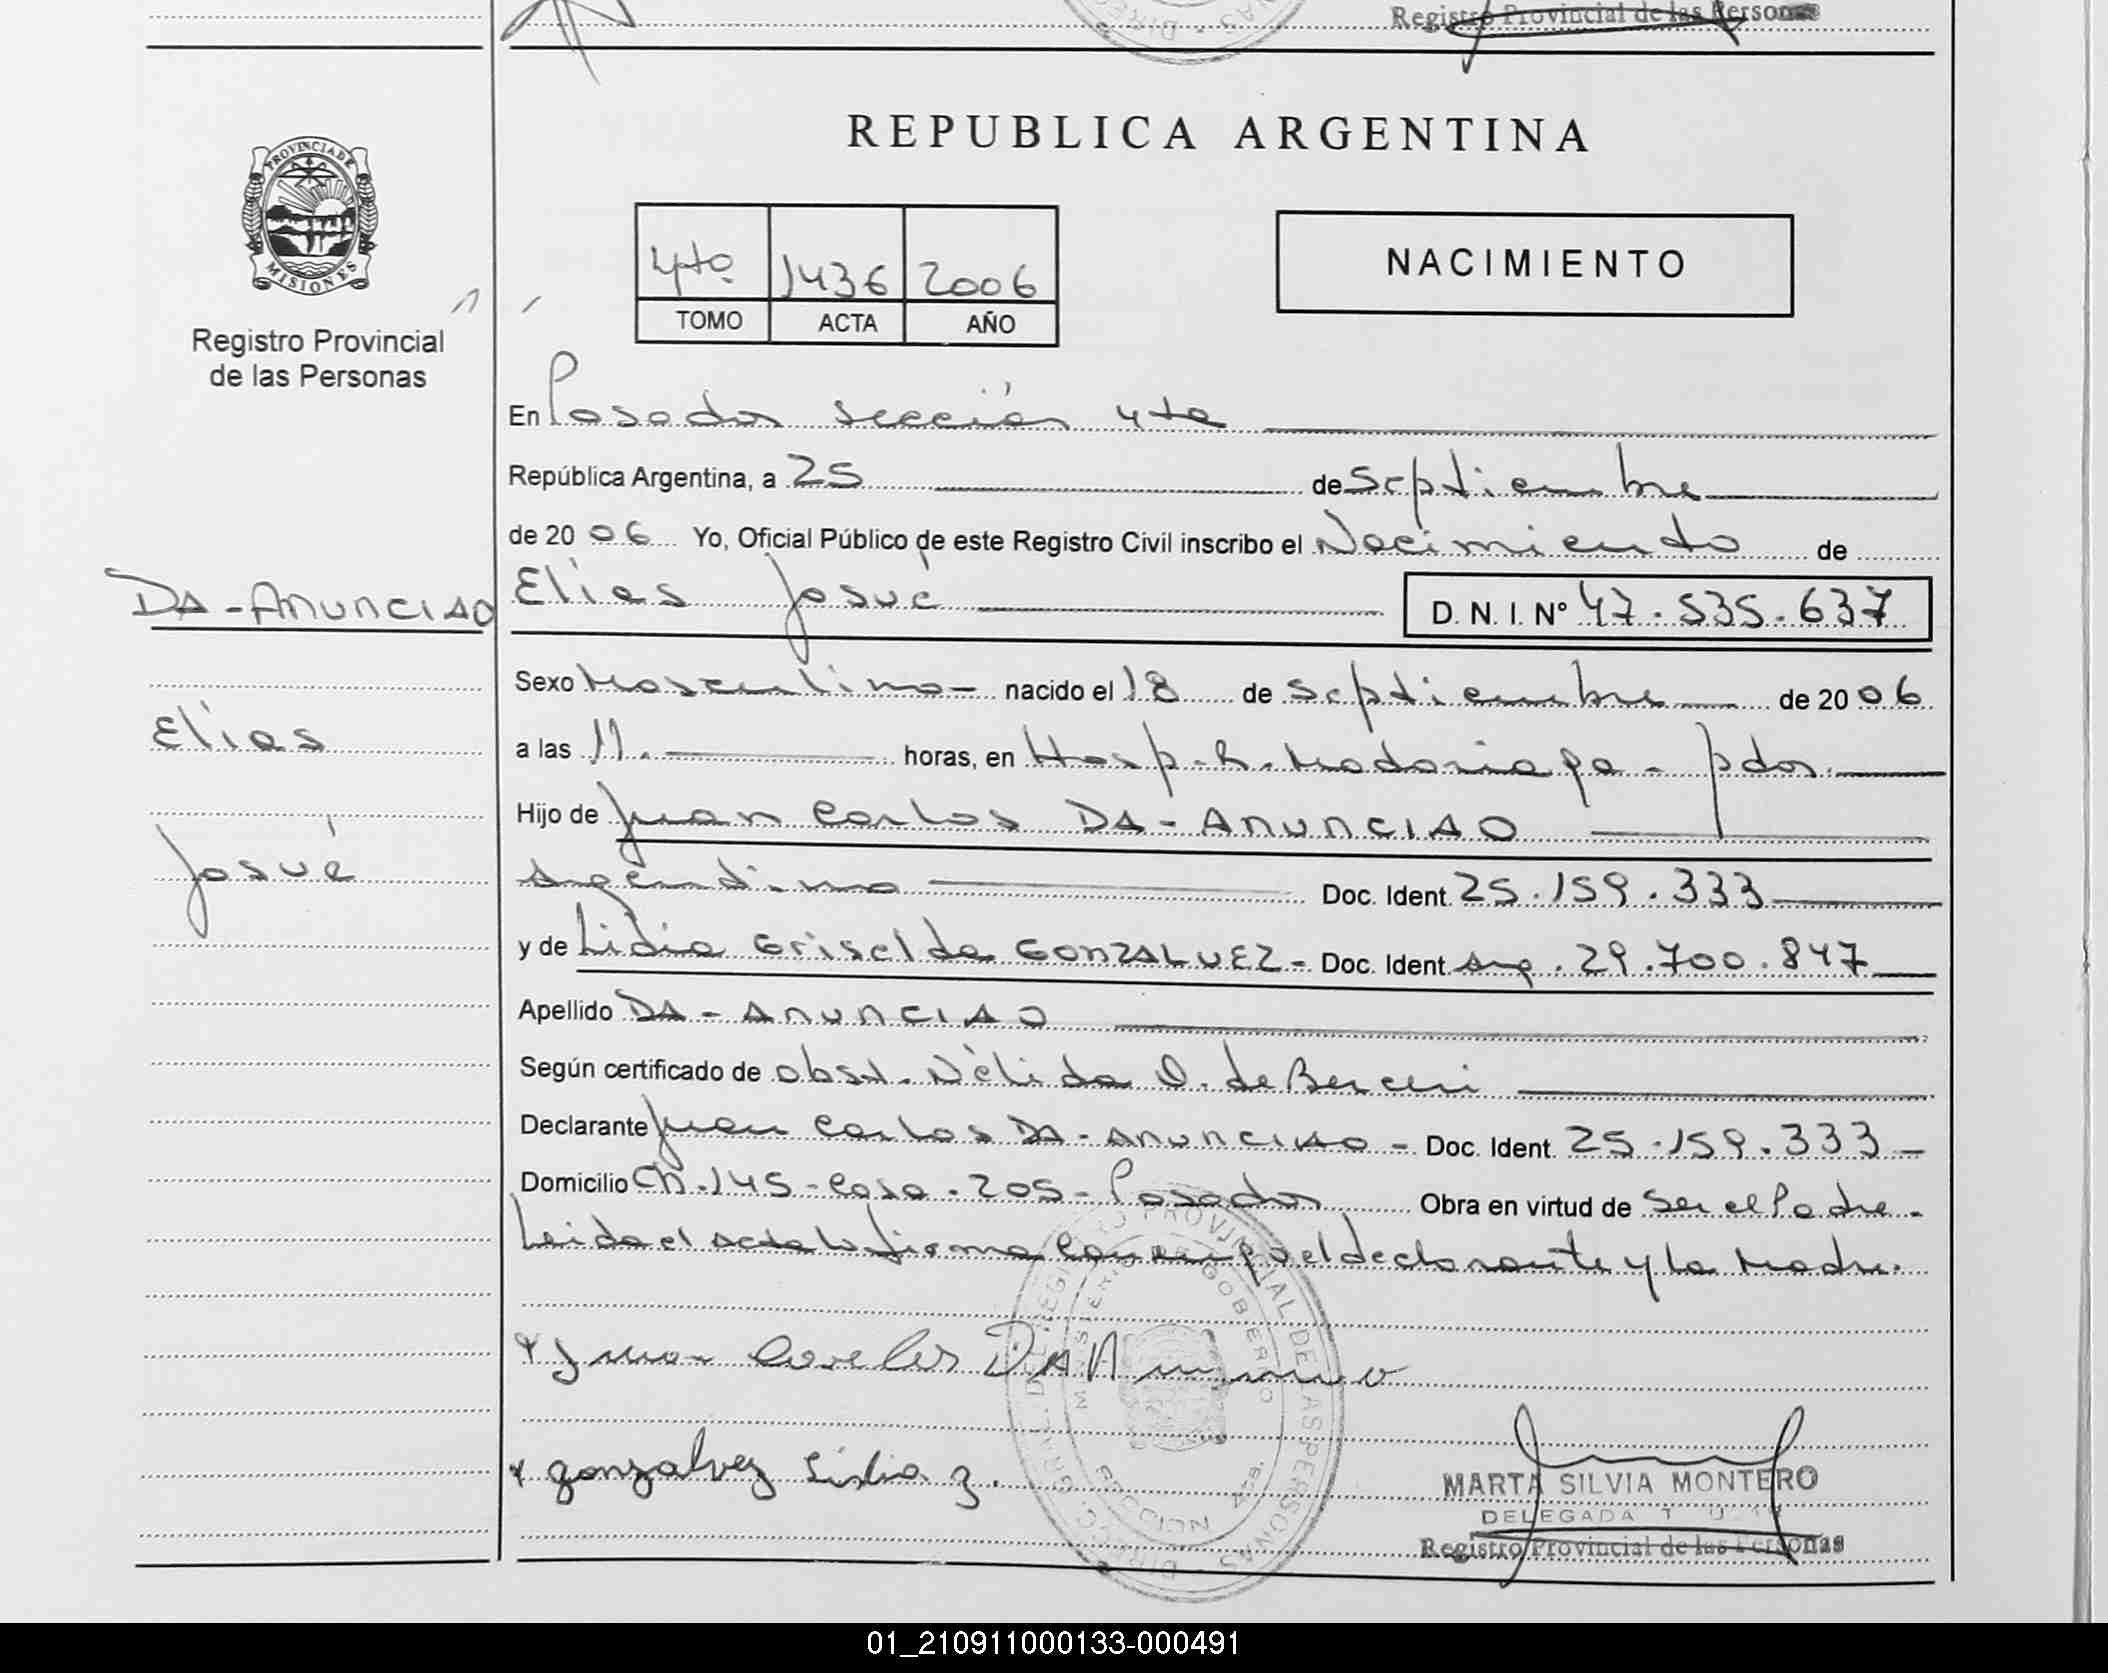 Registro Provincial de las Personas
PROVINCIA DE
MISIONES
Registro Provincial
de las Personas
REPUBLICA ARGENTINA
4to 1436 2006
TOMO ACTA AÑO
NACIMIENTO
En Posadas sección 4ta
República Argentina, a 25 de Septiembre
de 2006 Yo, Oficial Público de este Registro Civil inscribo el Nacimiento de
DA-ANUNCIAO
Elias Josué D. N. I. Nº 47.535.637
Sexo Masculino- nacido el 18 de Septiembre de 2006
Elias
a las 11. horas, en Hosp. R. Madariaga - pdas.
Hijo de Juan Carlos DA-ANUNCIAO
Josué
Argentino Doc. Ident. 25.159.333
y de Lidia Griselda GONZALVEZ- Doc. Ident Arg. 29.700.847
Apellido DA-ANUNCIAO
Según certificado de obst. Nélida O. de Berceri
Declarante Juan Carlos DA-ANUNCIAO - Doc. Ident. 25.159.333-
Domicilio Ch. 145-Casa.205-Posadas Obra en virtud de Ser el Padre.
Leida el acta la firma conmigo el declarante y la Madre.
x Juan Carlos DA
x gonzalvez Lidia g.
DIRECC. GRAL. DEL REGISTRO PROVINCIAL DE LAS PERSONAS
MINISTERIO GOBIERNO
SECCION 4ta.
MARTA SILVIA MONTERO
DELEGADA
Registro Provincial de las Personas
01_210911000133-000491